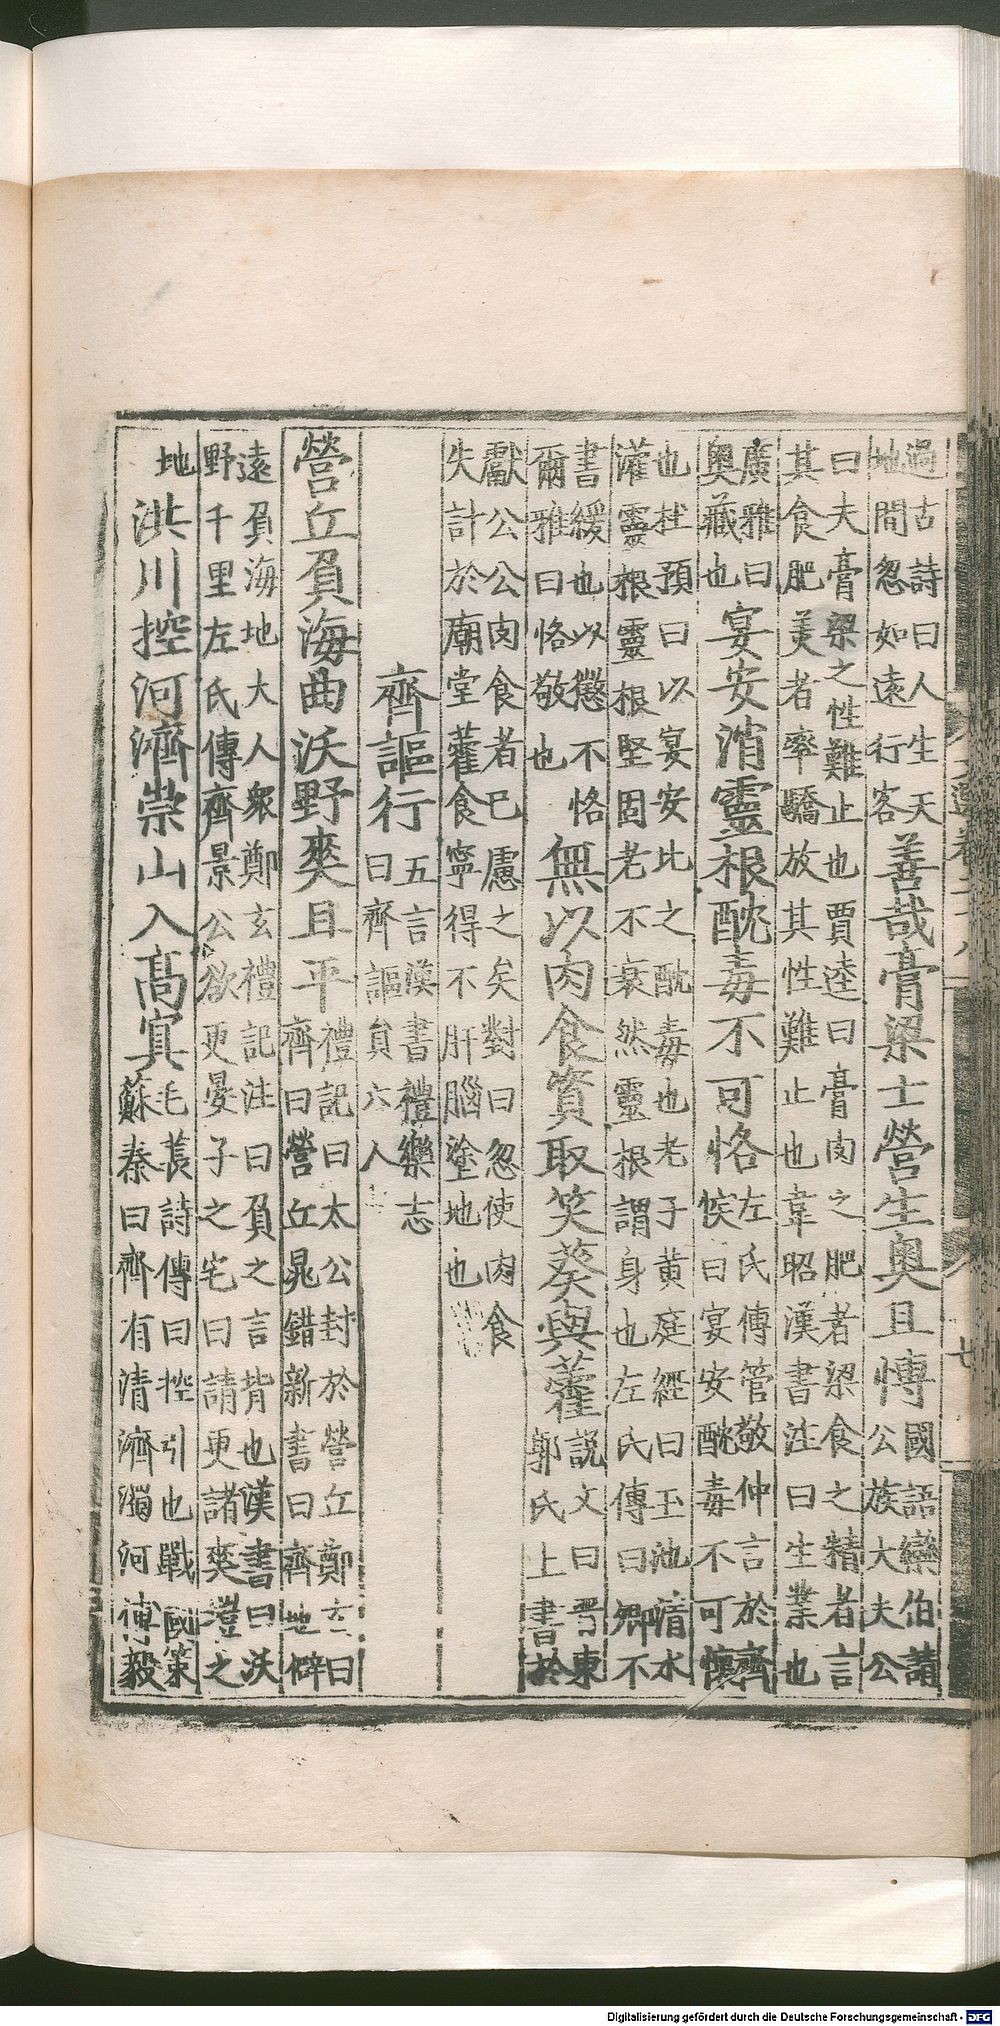 過古詩曰人生天
地間忽如遠行客
善哉膏梁士營生奥且愽
國語欒伯請
公族大夫公
曰夫膏梁之性難止也賈逵曰膏肉之肥者梁食之精者言
其食肥美者率驕放其性難止也韋昭漢書注曰生業也
廣雅曰
奥藏也
宴安消靈根酖毒不可恪
左氏傳管敬仲言於齊
侯曰宴安酖毒不可懷
也杜預曰以宴安比之酖毒也老子黄庭經曰玉池清水
灌靈根靈根堅固老不衰然靈根謂身也左氏傳曰卿不
書緩也以懲不恪
爾雅曰恪敬也
無以肉食資取笑葵與藿
說文曰晉東
郭氏上書於
獻公公肉食者已慮之矣對曰忽使肉食
失計於廟堂藿食寧得不肝腦塗地也
齊謳行
五言漢書禮樂志
曰齊謳貟六人
營丘負海曲沃野爽且平
禮記曰太公封於營丘鄭玄曰
齊曰營丘晁錯新書曰齊地僻
遠負海地大人衆鄭玄禮記注曰負之言背也漢書曰沃
野千里左氏傳齊景公欲更晏子之宅曰請更諸爽塏之
地
洪川控河濟崇山入髙冥
毛萇詩傳曰控引也戰國策
蘇秦曰齊有清濟濁河傅毅
Digitalisierung gefördert durch die Deutsche Forschungsgemeinschaft - DFG